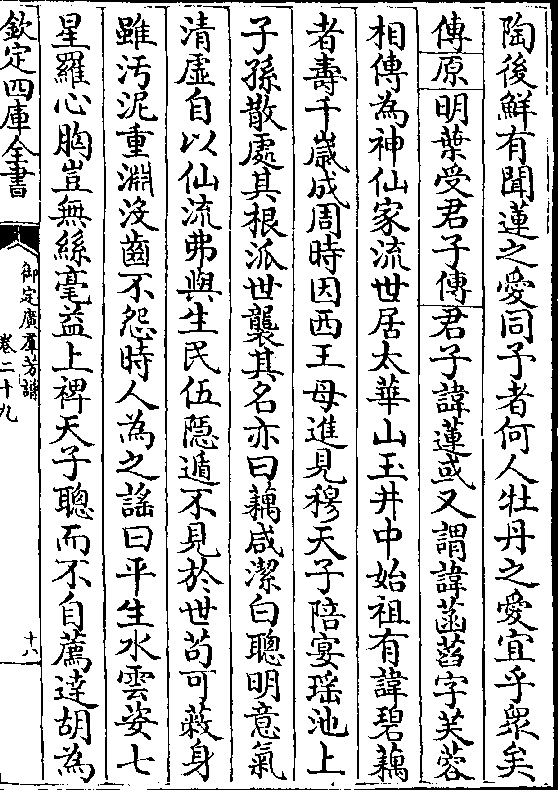 陶後鮮有聞蓮之愛同予者何人牡丹之愛宜乎衆矣
傳原明葉受君子傳君子諱蓮或又謂諱菡萏字芙蓉
相傳為神仙家流世居太華山玉井中始祖有諱碧藕
者壽千嵗成周時因西王母進見穆天子陪宴瑶池上
子孫散處其根派世襲其名亦曰藕咸潔白聰明意氣
清虚自以仙流弗與生民伍隠遁不見於世苟可蔽身
雖汚泥重淵沒齒不怨時人為之謡曰平生水雲姿七
星羅心胸豈無絲毫益上裨天子聰而不自薦達胡為
欽定四庫全書
御定廣羣芳譜
卷二十九
十八